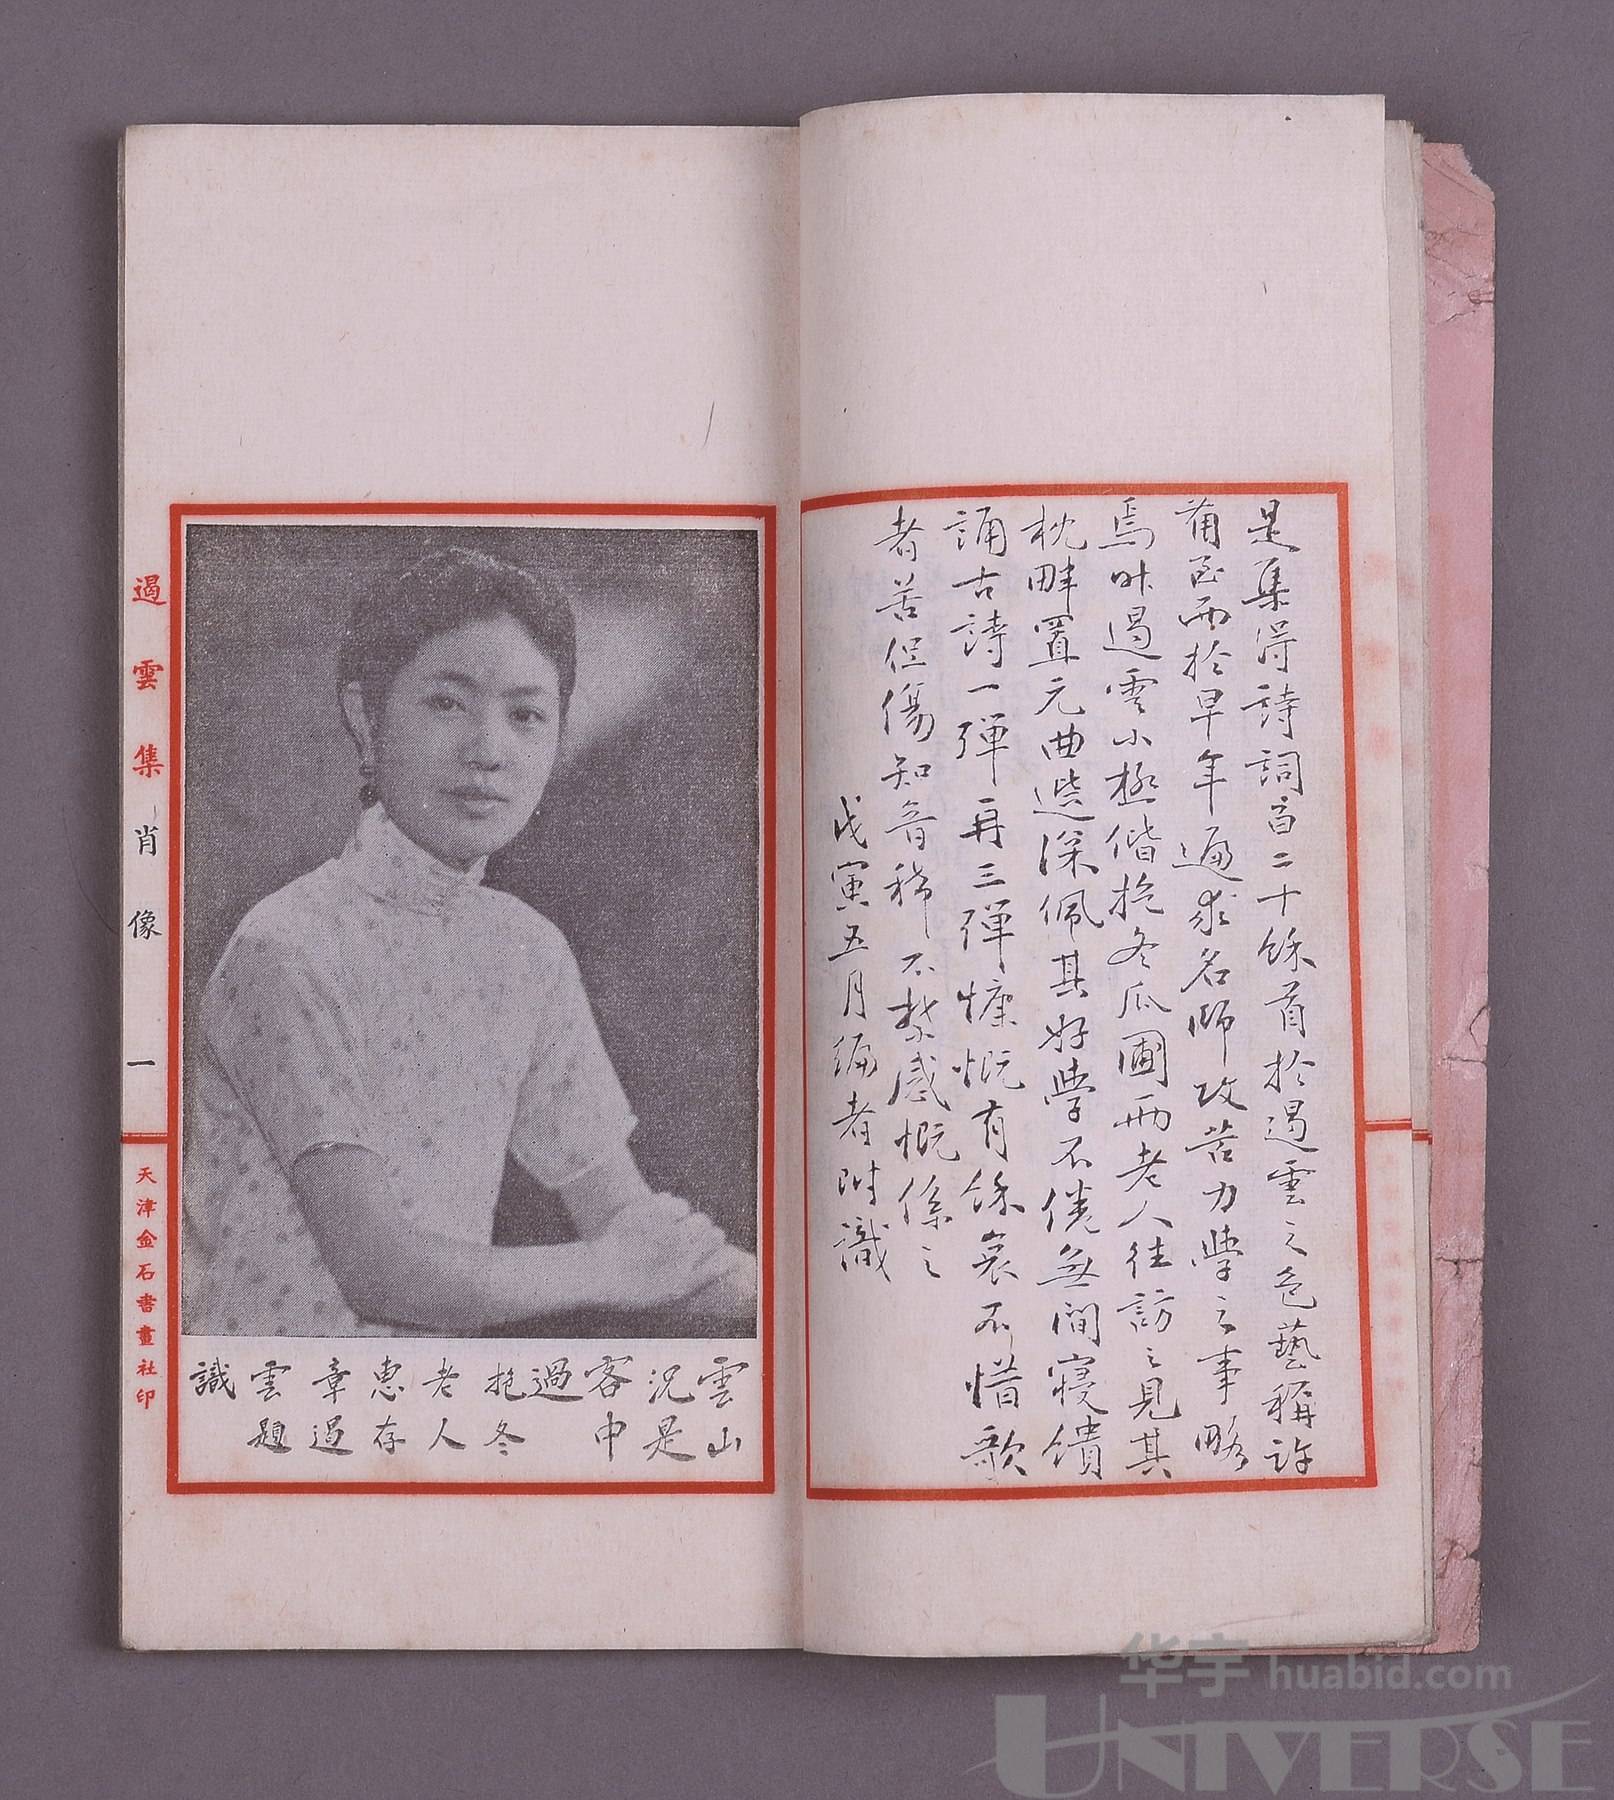 是集得詩詞百二十餘首於遏雲之色藝稱許
備至而於早年遍求名師攻苦力學之事略
焉昨遏雲小極偕抱冬瓜圃兩老人往訪之見其
枕畔置元曲選深佩其好學不倦無間寢饋
誦古詩一彈再三彈慷慨有餘哀不惜歌
者苦但傷知音稀不禁感慨係之
戊寅五月編者附識
遏雲集 肖像 一
天津金石書畫社印
雲山
況是
客中
過
抱冬
老人
惠存
章遏
雲題
識
华宇 huabid.com
UNIVERSE